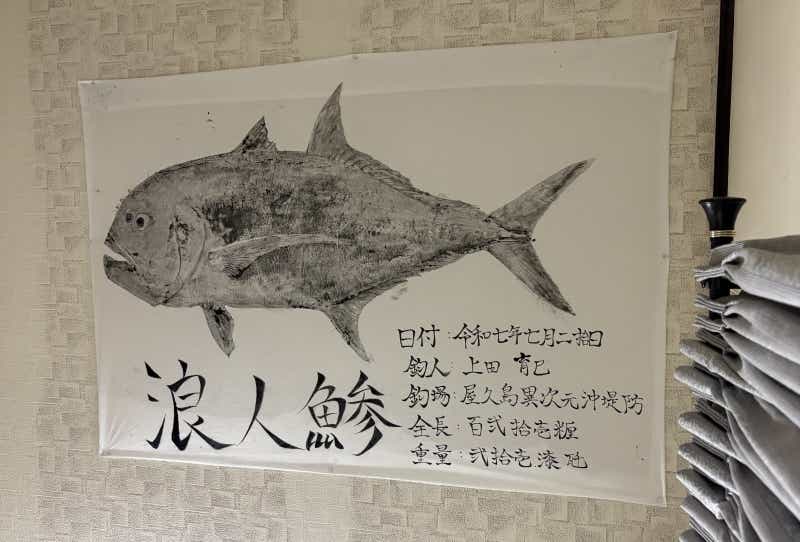 浪人鰺
日付：令和七年七月二拾日
釣人：上田 育巳
釣場：屋久島異次元沖堤防
全長：百弐拾壱糎
重量：弐拾壱漆瓩